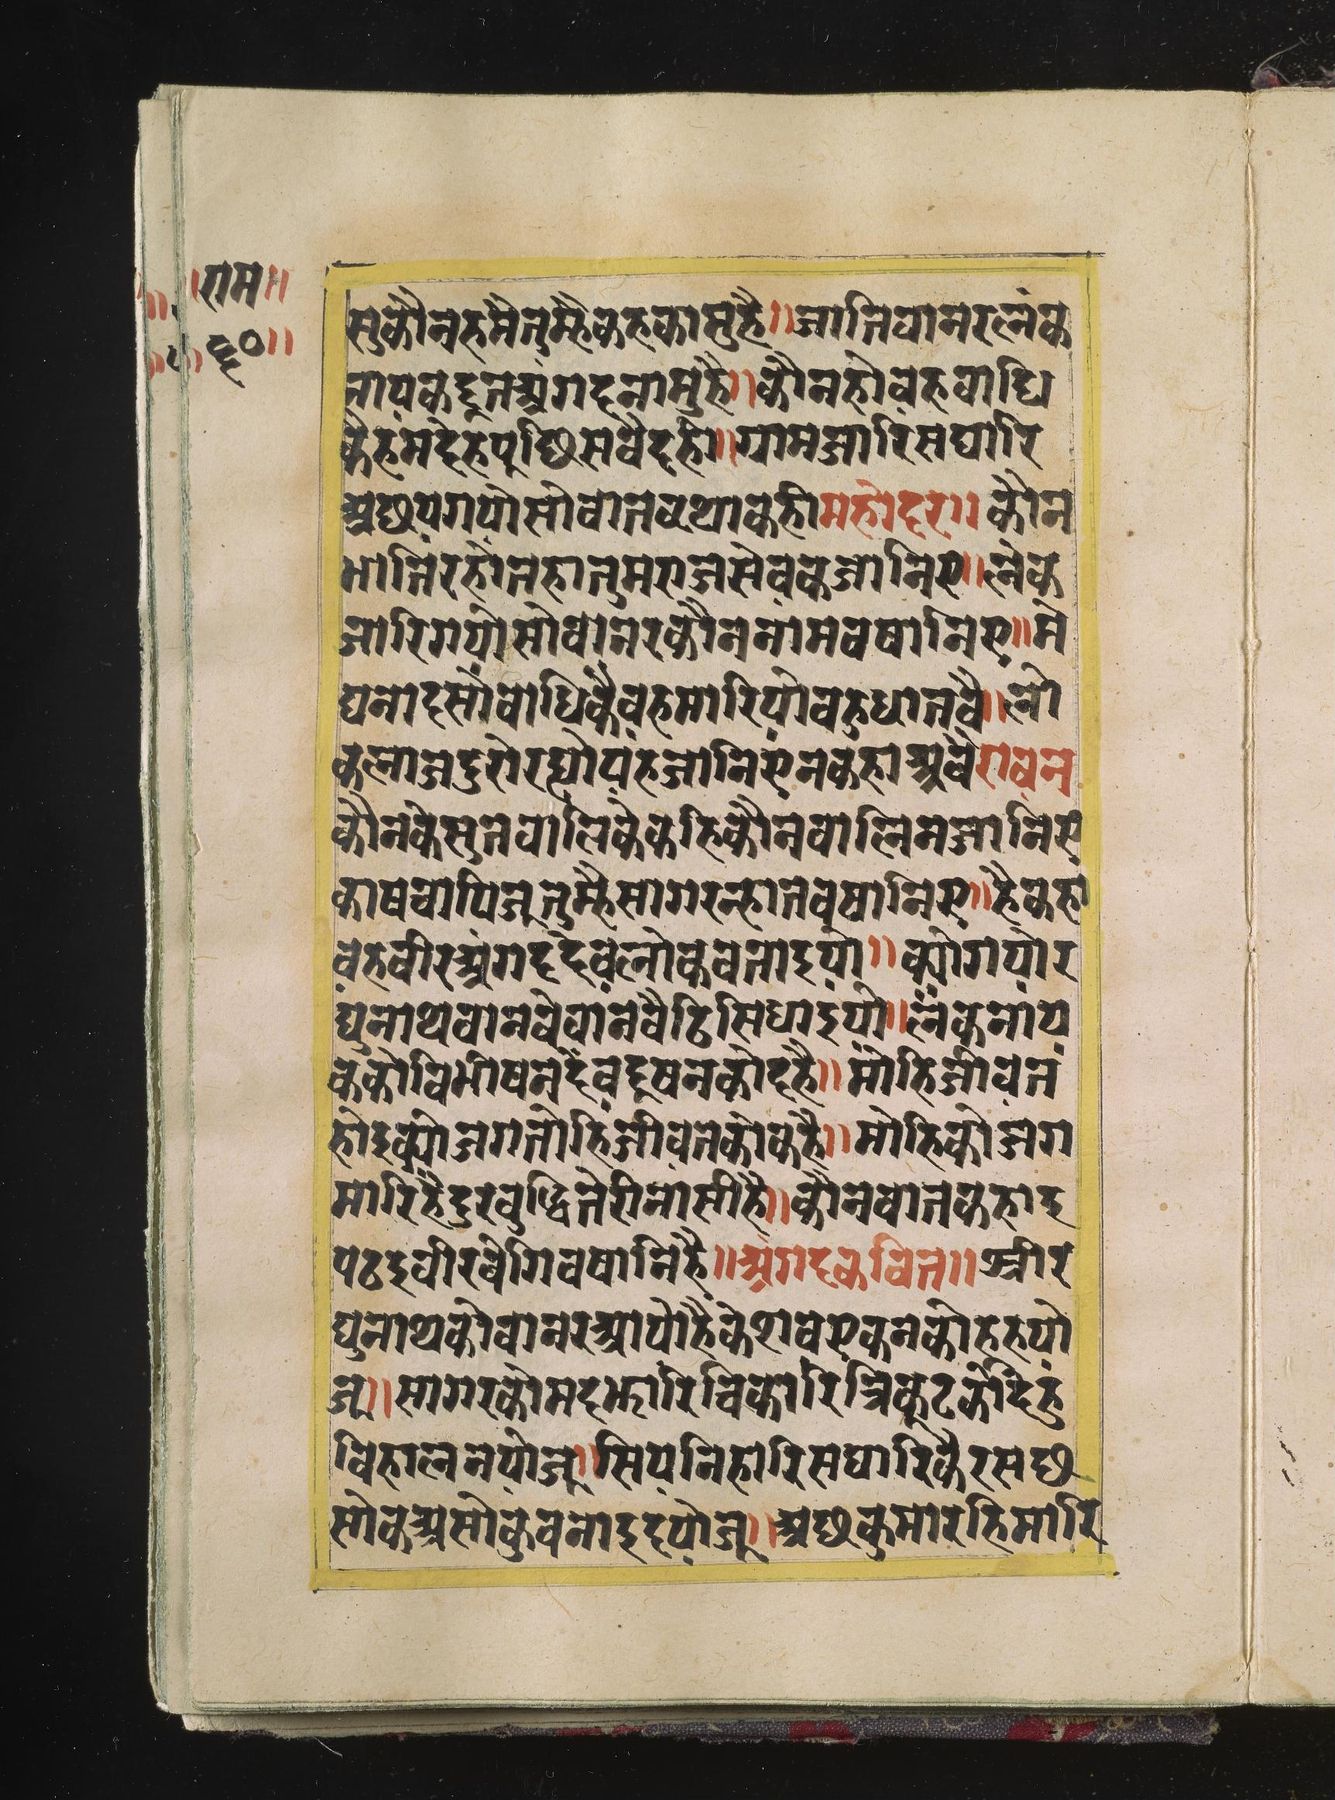 ॥राम॥
६०॥
सुकौनहमैतुम्हैकहकासुहै॥जातिवानरलंक
नायकदूतअंगदनामुहै॥कौनहोवहवाधि
कैहमदेहपूछिसवैदही॥यामजारिसघारि
अछयगयोसोवातवथाकहीमहोदर॥कौन
भातिरहौतहातुमराजसेवकजानिए॥लंक
जारिगयोसोवानरकौननामवषानिए॥मे
घनादसोवाधिकैवहमारियोवहुधातवै॥लो
कलाजदुरोरह्योयहजानिएनकहाअवैरावन
कौनकेसुतवालिकेकहिकौनवालिनजानिए
काषचापिजूतुम्हैसागरन्हातवषानिए॥हैकहा
वहवीरअंगददेवलोकवताइयो॥क्योगयोर
घुनाथवानवेवानवैठिसिधाइयो॥लंकनाय
ककोविभीषनदेवदूषनकोदहै॥मोहिजीवत
होइक्योजगतोहिजीवतकोकहै॥मोहिकोजग
मारिहैदुरवुद्धितेरीनासीहै॥कौनवातकहाइ
पठइवीरवेगिवषानिहै॥अंगदकवित॥श्रीर
घुनाथकोवानरआयोहैकेशवएकनकोहहयो
जू॥सागरकोमदझारिचिकारित्रिकूटकोदेहु
विहालनयोजू॥सियनिहारिसघारिकैरसछ
सोकअसोकुवनाइदयोजू॥अछकुमारहिमारि